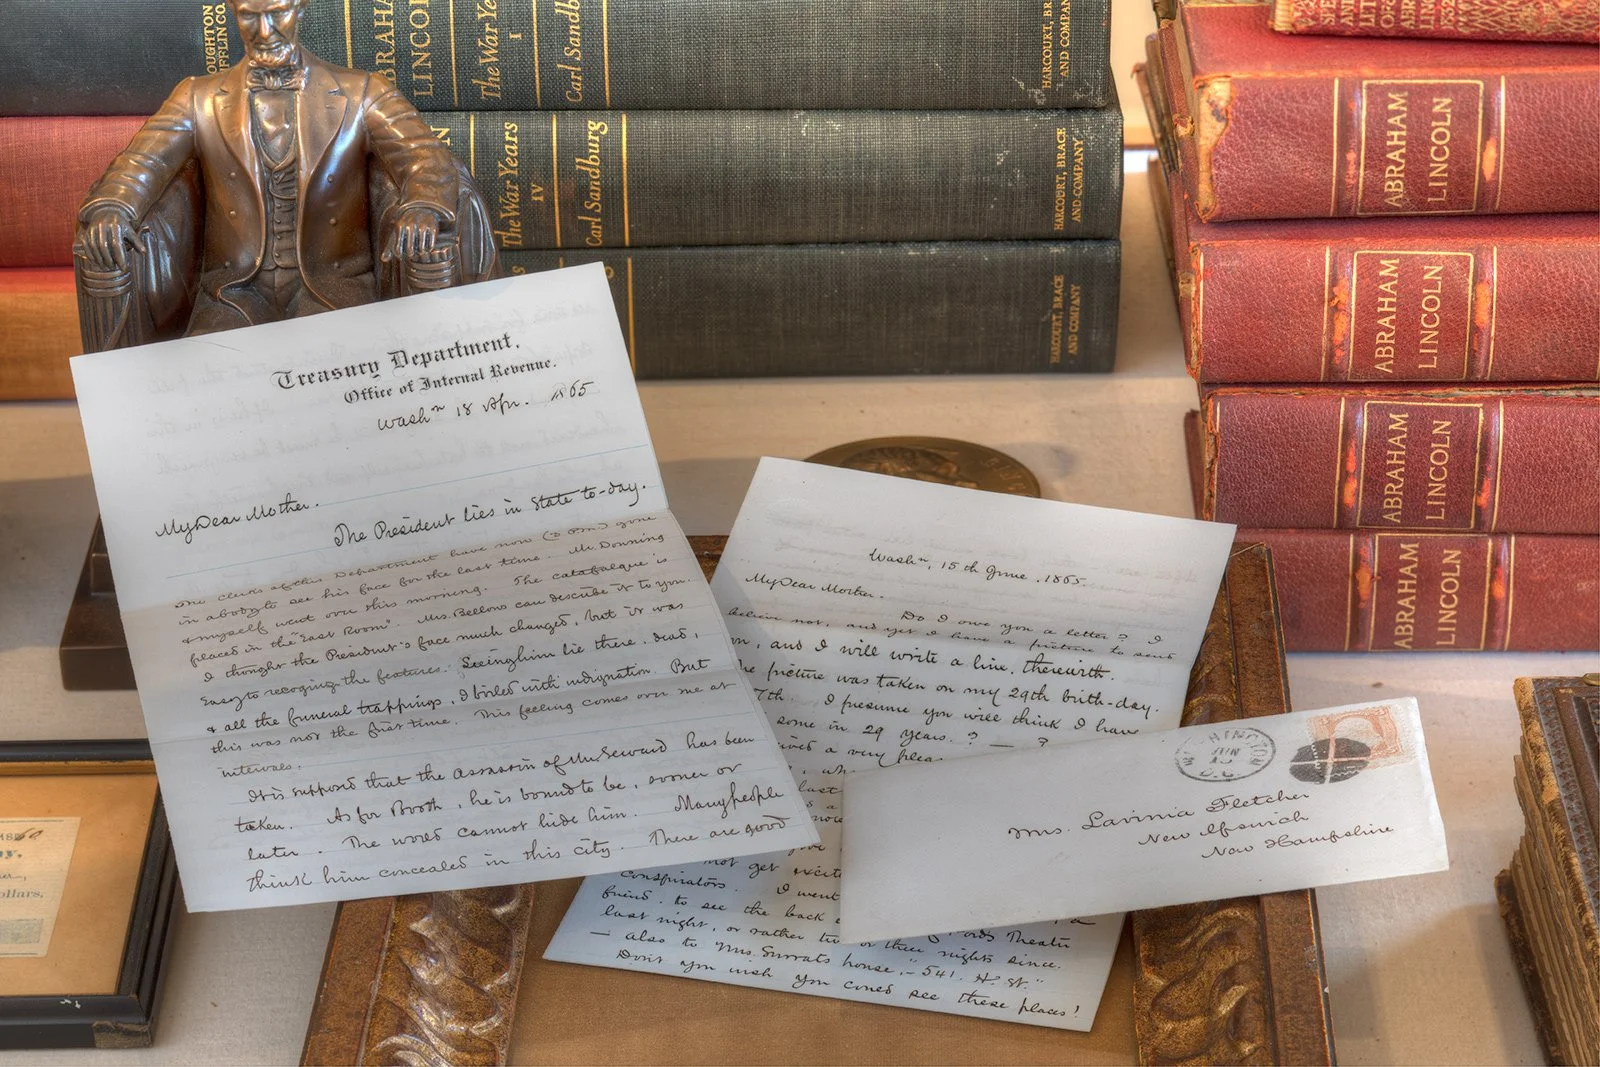 OUGHTON
MIFFLIN CO.
ABRAHAM
LINCOLN
The War Ye
I
Carl Sandb
HARCOURT, BR
AND COMPAN
The War Years
IV
Carl Sandburg
HARCOURT, BRACE
AND COMPANY
HARCOURT, BRACE
AND COMPANY
ABRAHAM
LINCOLN
ABRAHAM
LINCOLN
ABRAHAM
LINCOLN
ABRAHAM
LINCOLN
Treasury Department,
Office of Internal Revenue.
Washn 18 Apr. 1865
My Dear Mother.
The President lies in State to-day.
The clerks of this Department have now (2 P.M.) gone
in a body to see his face for the last time. Mr. Donning
& myself went over this morning. The catafalque is
placed in the "East Room". Mrs. Bellows can describe it to you.
I thought the President's face much changed, but it was
easy to recognize the features. Seeing him lie there, dead,
& all the funeral trappings, I boiled with indignation. But
this was not the first time. This feeling comes over me at
intervals.
It is supposed that the assassin of Mr. Seward has been
taken. As for Booth, he is bound to be, sooner or
later. The world cannot hide him. Many people
think him concealed in this city. There are good
Washn, 15th June, 1865.
My Dear Mother.
Do I owe you a letter? I
believe not, and yet I have a picture to send
, and I will write a line, therewith.
he picture was taken on my 29th birth-day.
7th. I presume you will think I have
some in 29 years. ? — ?
a very pleas
last
not get excite
conspirators. I went
friend, to see the back
Fords Theatre
last night, or rather two or three nights since.
— also to "Mrs. Surrats house," - 541. H. St."
Don't you wish you could see these places!
WASHINGTON
JUN
15
D.C.
Mrs. Lavinia Fletcher
New Ipswich
New Hampshire
1860
ollars.